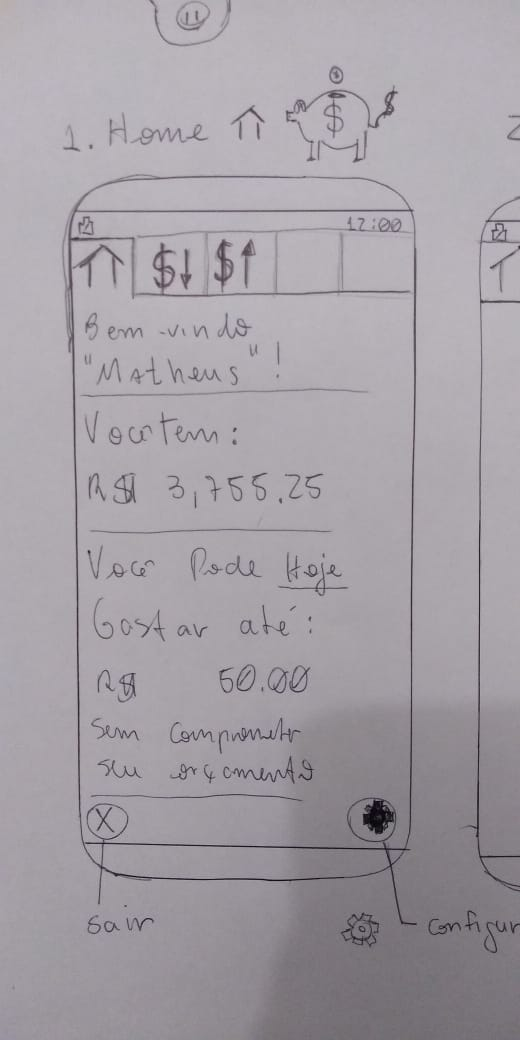 1. Home
$
$
12:00
$↓ $↑
Bem-vindo
"Matheus"!
Você tem:
R$ 3,755.25
Você Pode Hoje
Gastar até:
R$ 50.00
Sem comprometer
seu orçamento
X
Sair
configur